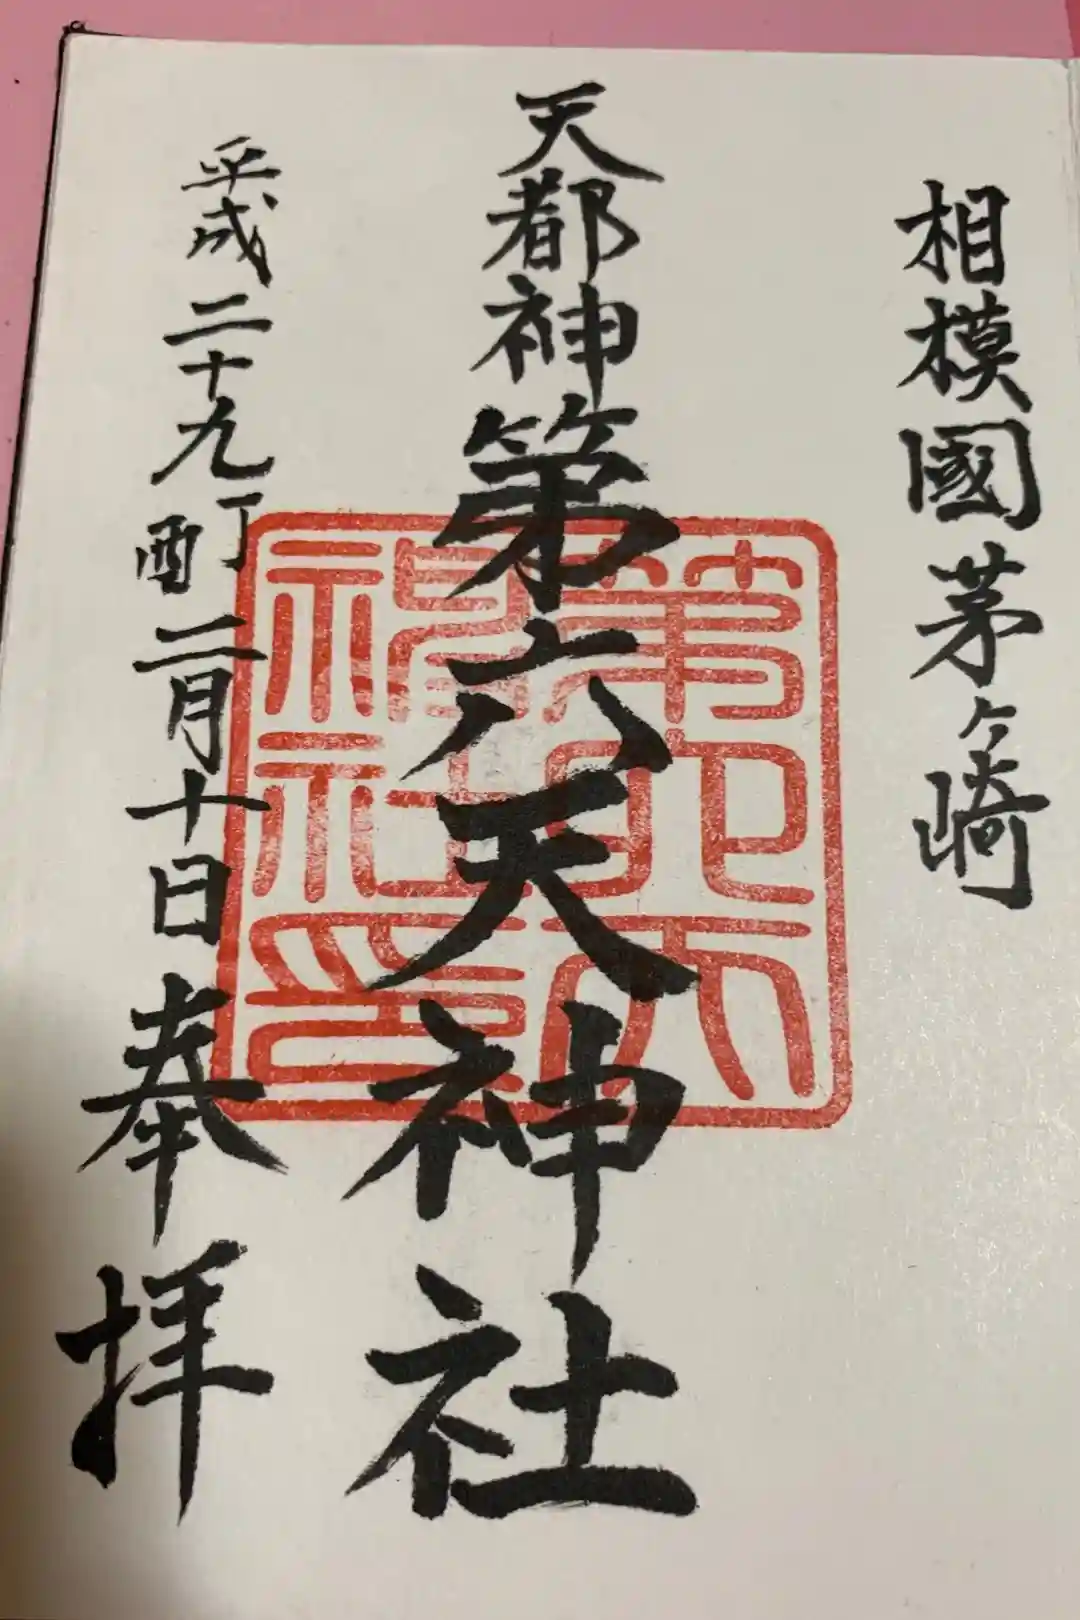 相模國茅ヶ崎
天都神第六天神社
平成二十九丁酉二月十日奉拝